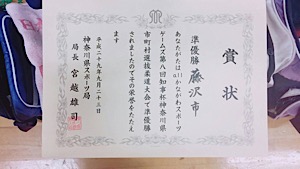 賞状
準優勝 藤沢市
あなたがたはallかながわスポーツ
ゲームズ第八回知事杯神奈川県
市町村選抜柔道大会で準優勝
されましたのでその栄誉をたたえ
ます
平成二十九年九月二十三日
神奈川県スポーツ局
局長 宮越雄司